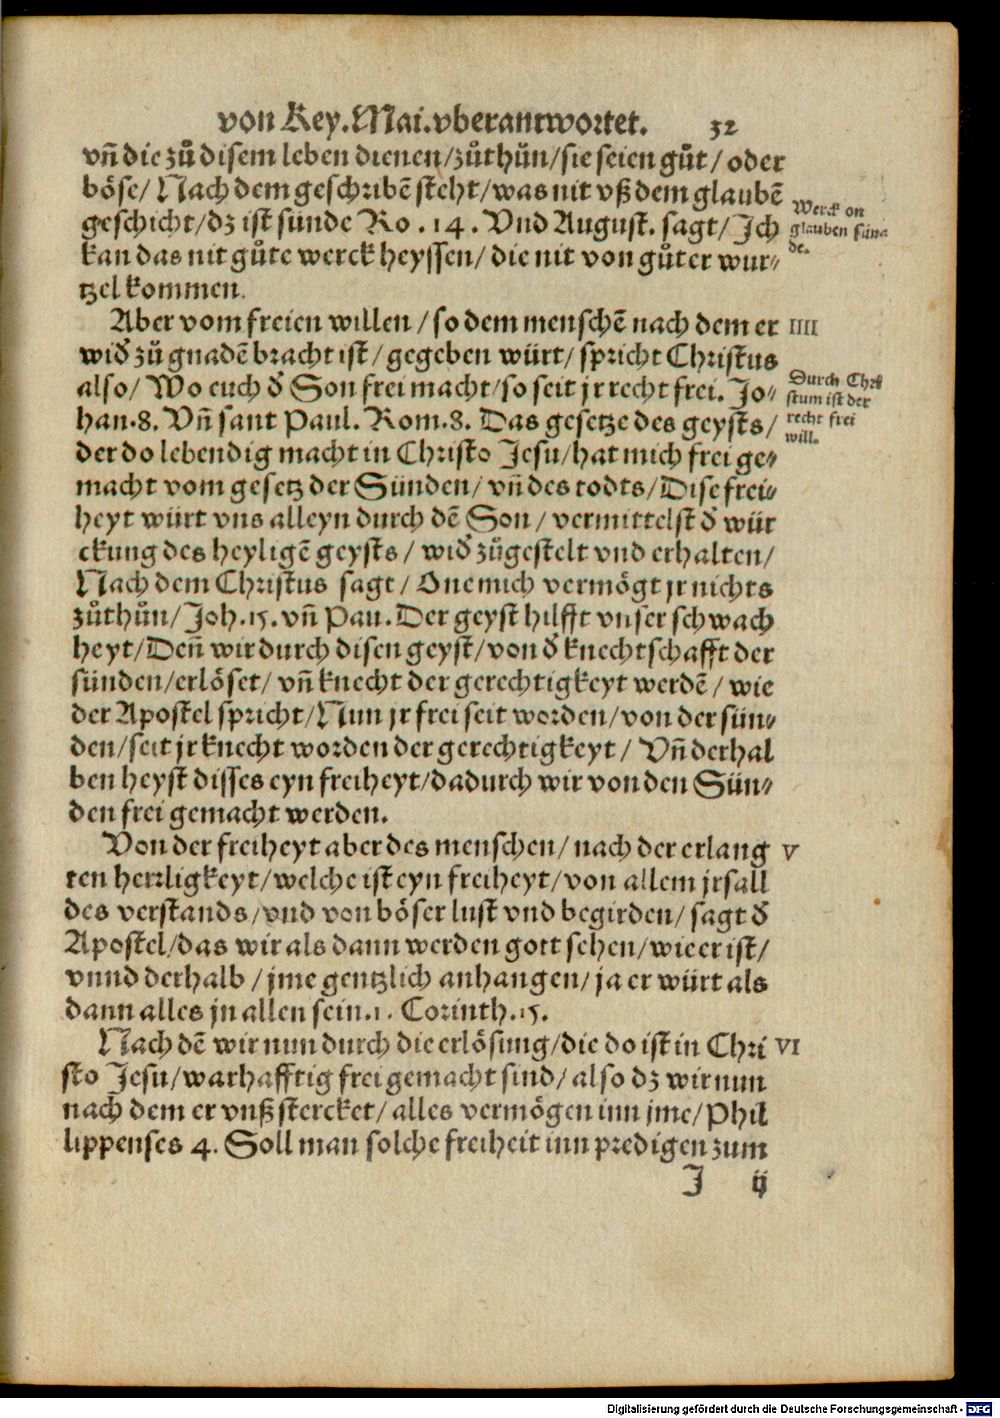 von Key. Mai. vberantwortet. 32
vñ die zů disem leben dienen/zůthůn/sie seien gůt/oder
böse/Nach dem geschribẽ steht/was nit vß dem glaubẽ
geschicht/dz ist sünde Ro. 14. Vnd August. sagt/Ich
kan das nit gůte werck heyssen/die nit von gůter wur⸗
tzel kommen.
Werck on
glauben sün⸗
de.
Aber vom freien willen/so dem menschẽ nach dem er
wiđ zů gnadẽ bracht ist/gegeben würt/spricht Christus
also/Wo euch đ Son frei macht/so seit jr recht frei. Jo⸗
han.8. Vñ sant Paul. Rom.8. Das gesetze des geysts/
der do lebendig macht in Christo Jesu/hat mich frei ge⸗
macht vom gesetz der Sünden/vñ des todts/Dise frei⸗
heyt würt vns alleyn durch dẽ Son/vermittelst đ wür
ckung des heyligẽ geysts/wiđ zůgestelt vnd erhalten/
Nach dem Christus sagt/One mich vermögt jr nichts
zůthůn/Joh.15. vñ Pau. Der geyst hilfft vnser schwach
heyt/Deñ wir durch disen geyst/von đ knechtschafft der
sünden/erlöset/vñ knecht der gerechtigkeyt werdẽ/wie
der Apostel spricht/Nun jr frei seit worden/von der sün⸗
den/seit jr knecht worden der gerechtigkeyt/Vñ derhal
ben heyst disses eyn freiheyt/dadurch wir von den Sün⸗
den frei gemacht werden.
IIII
Durch Chri
stum ist der
recht frei
will.
Von der freiheyt aber des menschen/nach der erlang
ten herrligkeyt/welche ist eyn freiheyt/von allem jrsall
des verstands/vnd von böser lust vnd begirden/sagt đ
Apostel/das wir als dann werden gott sehen/wie er ist/
vnnd derhalb/jme gentzlich anhangen/ja er würt als
dann alles jn allen sein.1. Corinth.15.
V
Nach dẽ wir nun durch die erlösung/die do ist in Chri
sto Jesu/warhafftig frei gemacht sind/also dz wir nun
nach dem er vnß stercket/alles vermögen inn jme/Phil
lippenses 4. Soll man solche freiheit inn predigen zum
VI
J ij
Digitalisierung gefördert durch die Deutsche Forschungsgemeinschaft - DFG